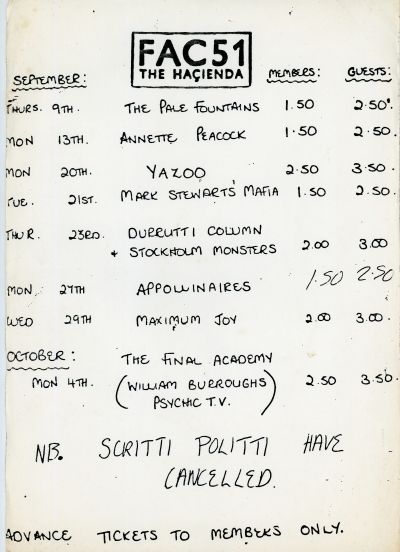 FAC51
THE HAÇIENDA
SEPTEMBER: MEMBERS: GUESTS:
THURS. 9TH. THE PALE FOUNTAINS 1.50 2.50.
MON 13TH. ANNETTE PEACOCK 1.50 2.50.
MON 20TH. YAZOO 2.50 3.50.
TUE. 21ST. MARK STEWARTS' MAFIA 1.50 2.50.
THUR. 23RD. DURRUTTI COLUMN
+ STOCKHOLM MONSTERS 2.00 3.00
MON. 27TH APPOLLINAIRES 1.50 2.50
WED 29TH MAXIMUM JOY 2.00 3.00.
OCTOBER: THE FINAL ACADEMY
MON 4TH. (WILLIAM BURROUGHS 2.50 3.50.
PSYCHIC T.V.)
NB. SCRITTI POLITTI HAVE
CANCELLED.
ADVANCE TICKETS TO MEMBERS ONLY.